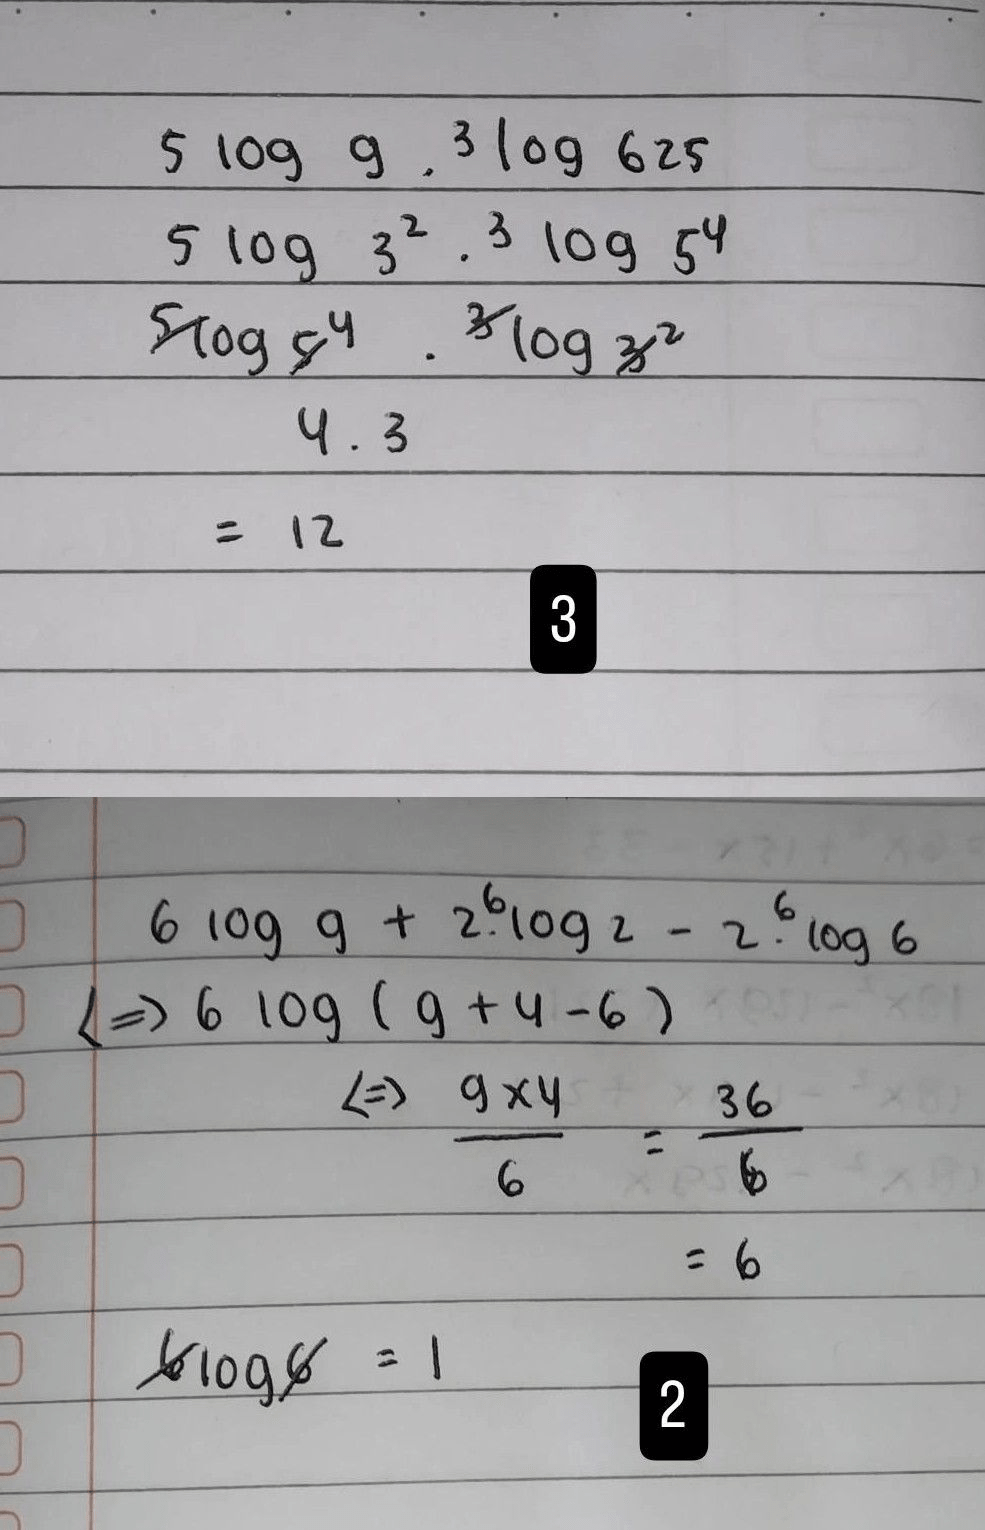 5 log 9 . ³log 625
5 log 3² . ³ log 5⁴
⁵log 5⁴ . ³log 3²
4 . 3
= 12
3
6 log 9 + 2.⁶log 2 - 2.⁶ log 6
<=> 6 log (9 + 4 - 6)
<=> 9x4/6 = 36/6
= 6
6log6 = 1
2